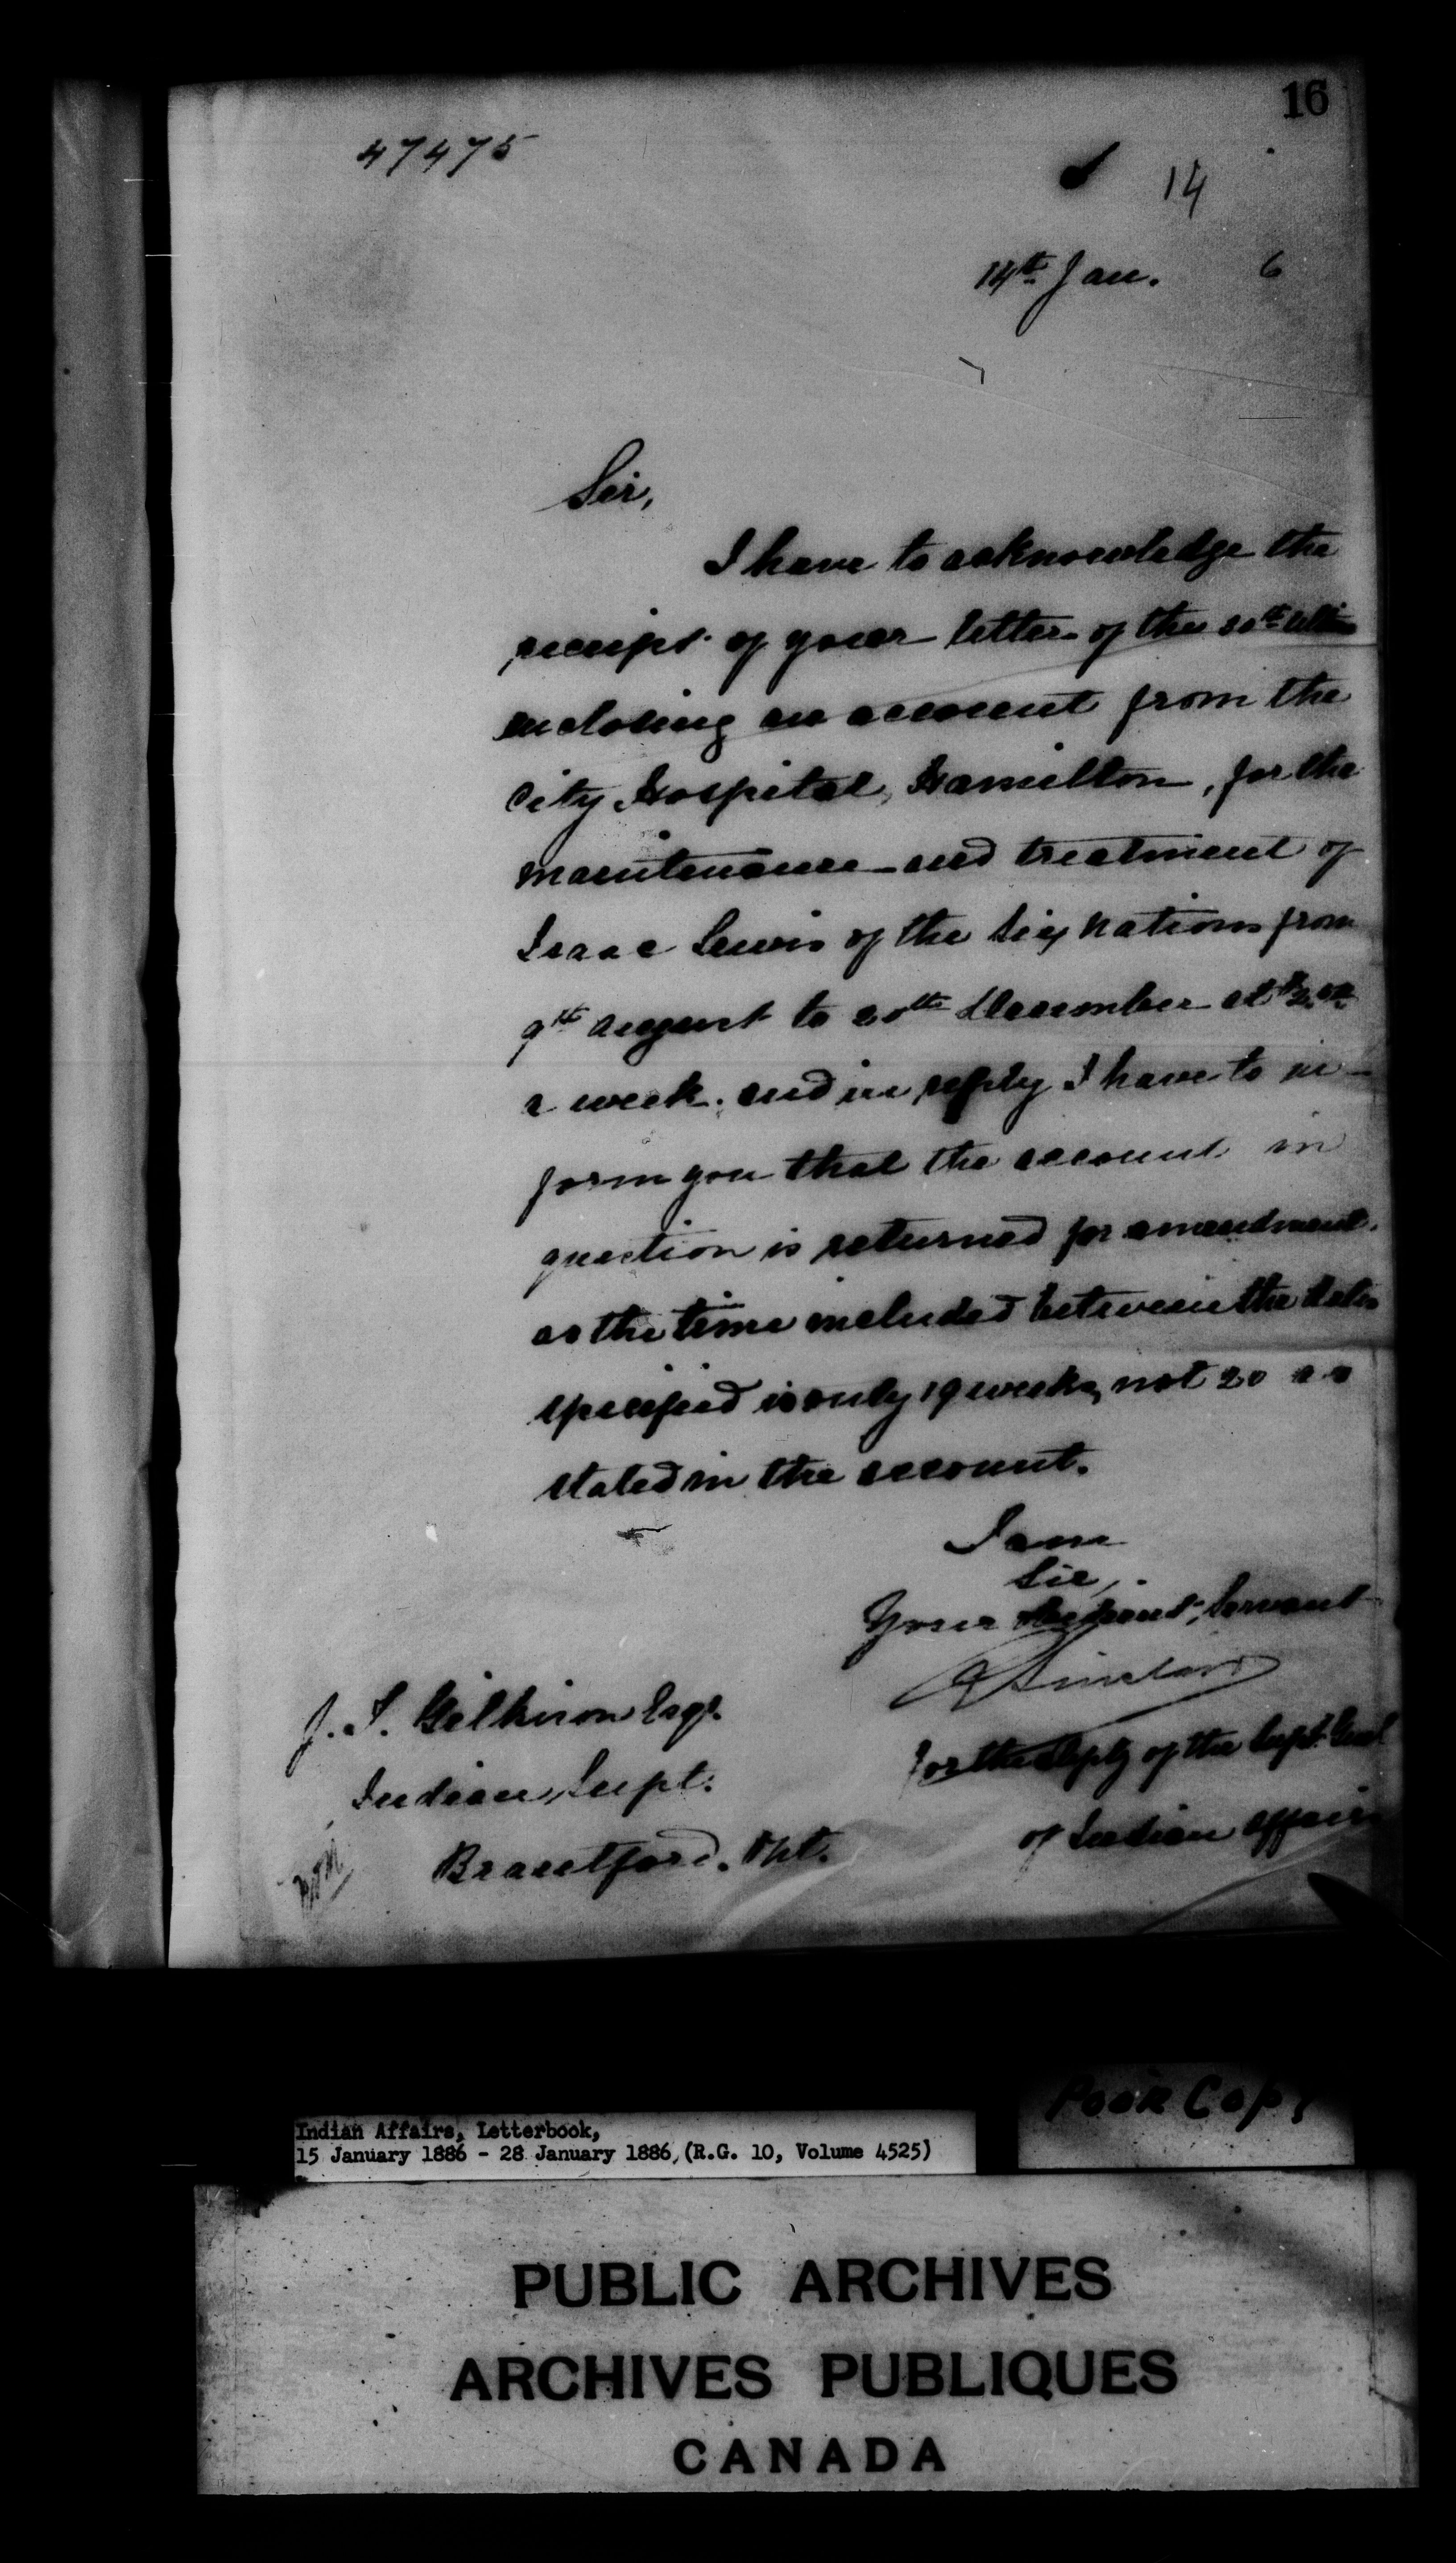 16
47475
14
14th Jan. 6
Sir,
I have to acknowledge the
receipt of your letter of the 30th ultimo
enclosing an account from the
City Hospital, Hamilton, for the
maintenance and treatment of
Isaac Lewis of the Six Nations from
9th August to 20th December at $2.
a week. and in reply I have to in-
form you that the account in
question is returned for amendment.
as the time included between the dates
specified is only 19 weeks, not 20 as
stated in the account.
I am
Sir,
Your Obedient Servant
Sinclair
J. T. Gilkison Esqr.
for the Depty of the Supt. Genl
Indian Supt.
of Indian Affairs
Brantford. Ont.
Poor Copy
Indian Affairs, Letterbook,
15 January 1886 - 28 January 1886, (R.G. 10, Volume 4525)
PUBLIC ARCHIVES
ARCHIVES PUBLIQUES
CANADA